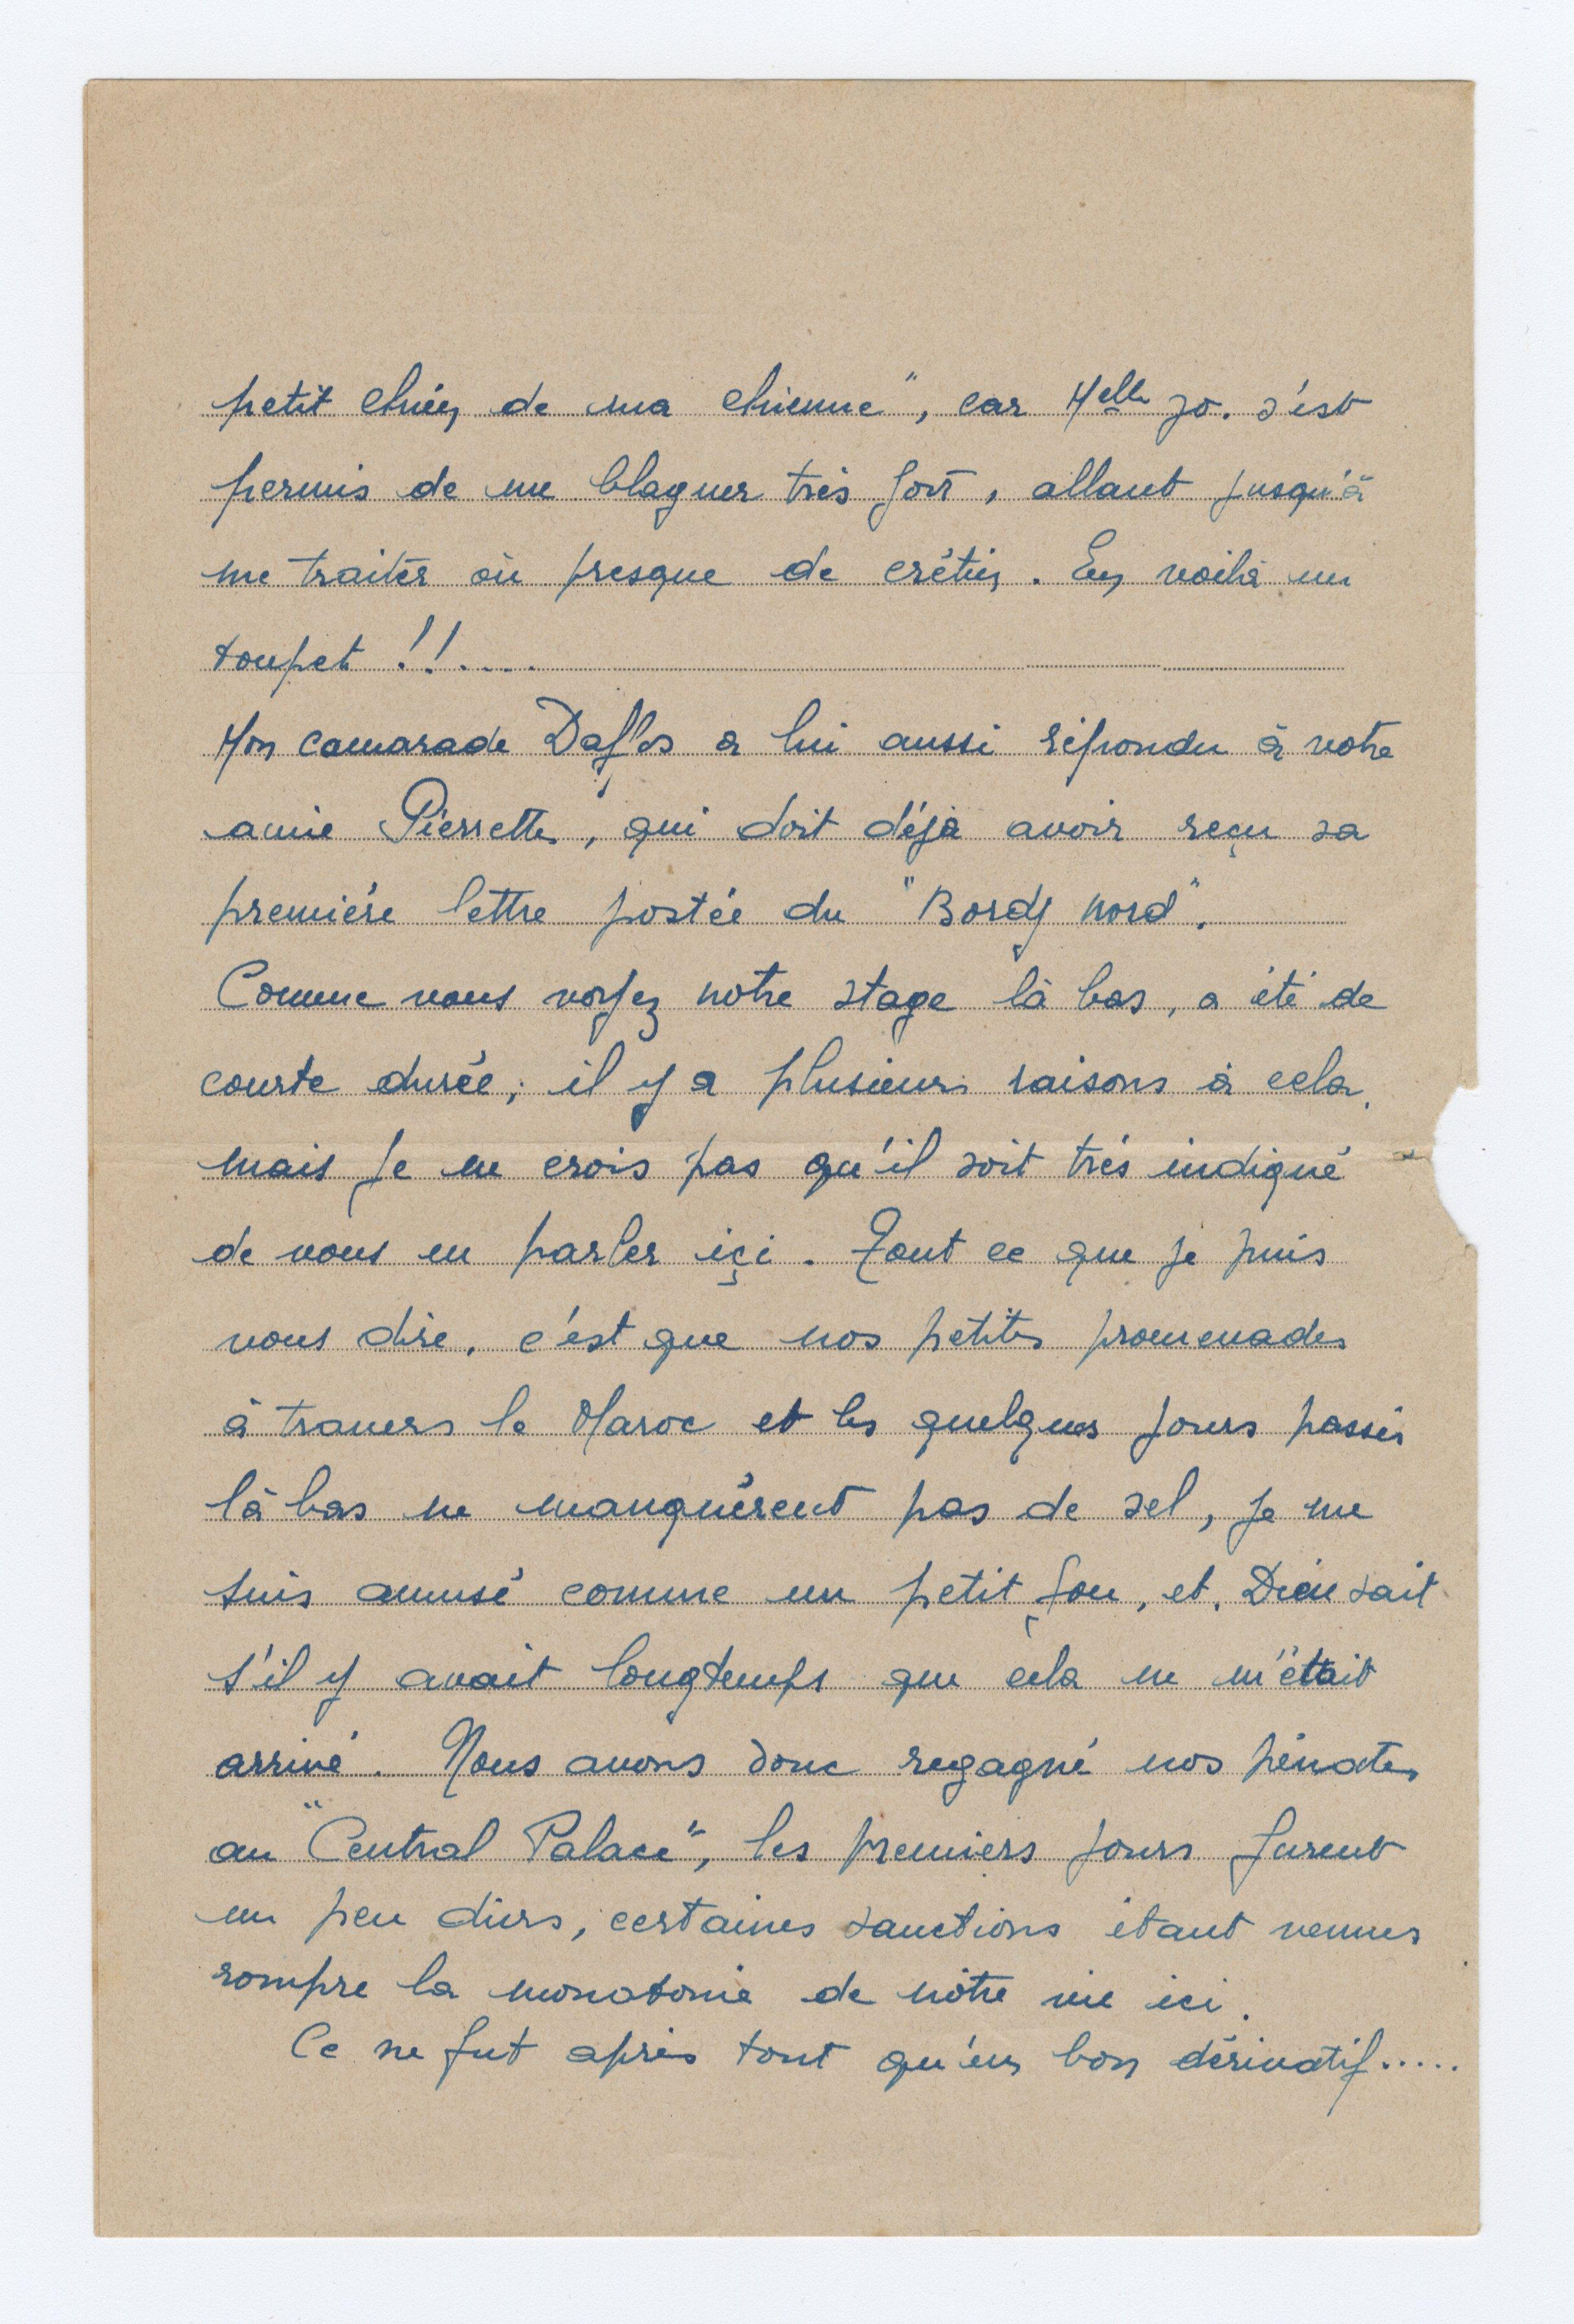 petit chien de ma chienne", car Melle Jo. s'est
permis de me blaguer très fort, allant jusqu'à
me traiter où presque de crétin. En voilà un
toupet !!....
Mon camarade a lui aussi répondu à votre
amie Pierrette, qui doit déjà avoir reçu sa
première lettre postée du "Bordj Nord".
Comme vous voyez notre stage là bas, a été de
courte durée; il y a plusieurs raisons à cela,
mais je ne crois pas qu'il soit très indiqué
de vous en parler içi. Tout ce que je puis
vous dire, c'est que nos petites promenades
à travers le Maroc et les quelques jours passés
là bas ne manquèrent pas de sel, je me
suis amusé comme un petit fou, et, Dieu sait
s'il y avait longtemps que cela ne m'était
arrivé. Nous avons donc regagné nos pénates
au "Central Palace", les premiers jours furent
un peu durs, certaines sanctions étant venues
rompre la monotonie de nôtre vie ici.
Ce ne fut après tout qu'un bon dérivatif.....